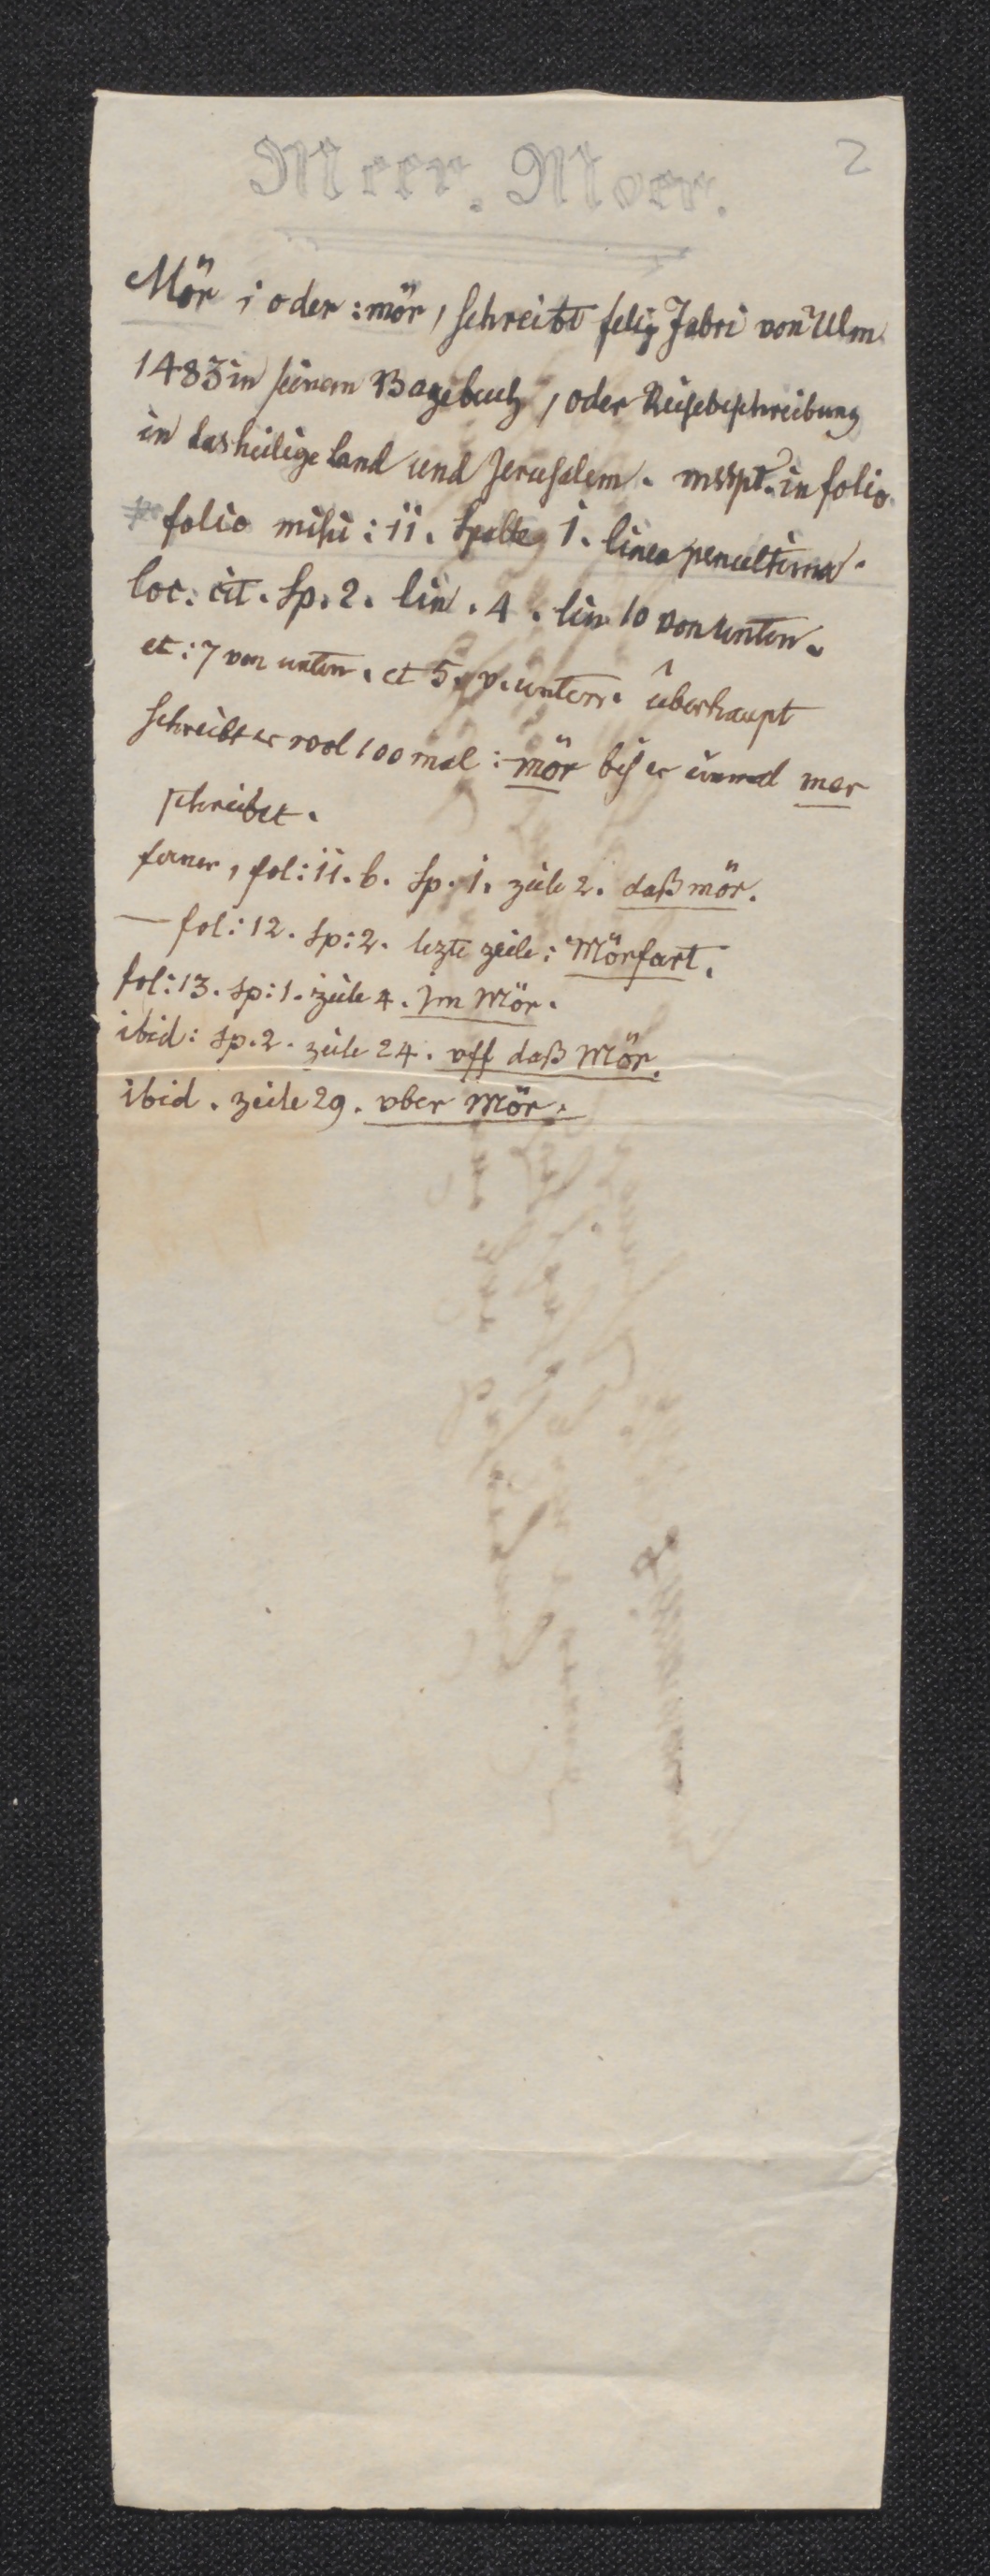 Meer. Moer.
2
Mör ; oder : mör, schreibt felix Fabri von Ulm
1483 in seinem Bagebuch, oder Reisebeschreibung
in das heilige Land und Jerusalem. mspt. in folio
folio mihi : ii. Spalte 1. linea penultima.
loc. cit. Sp. 2. lin. 4. lin 10 von unten.
et : 7 von unten. et 5. v. unten. überhaupt
schreibt er wol 100 mal : mör bis er einmal mer
schreibet.
ferner, fol: 11. b. Sp. 1. zeile 2. daß mör.
— fol: 12. sp: 2. lezte zeile : Mörfart.
fol: 13. sp: 1. zeile 4. Jm Mör.
ibid: sp. 2. zeile 24. vff daß Mör.
ibid. zeile 29. vber Mör.